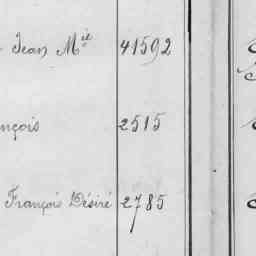 Jean Mie 41592
nçois 2515
François Désiré 2785